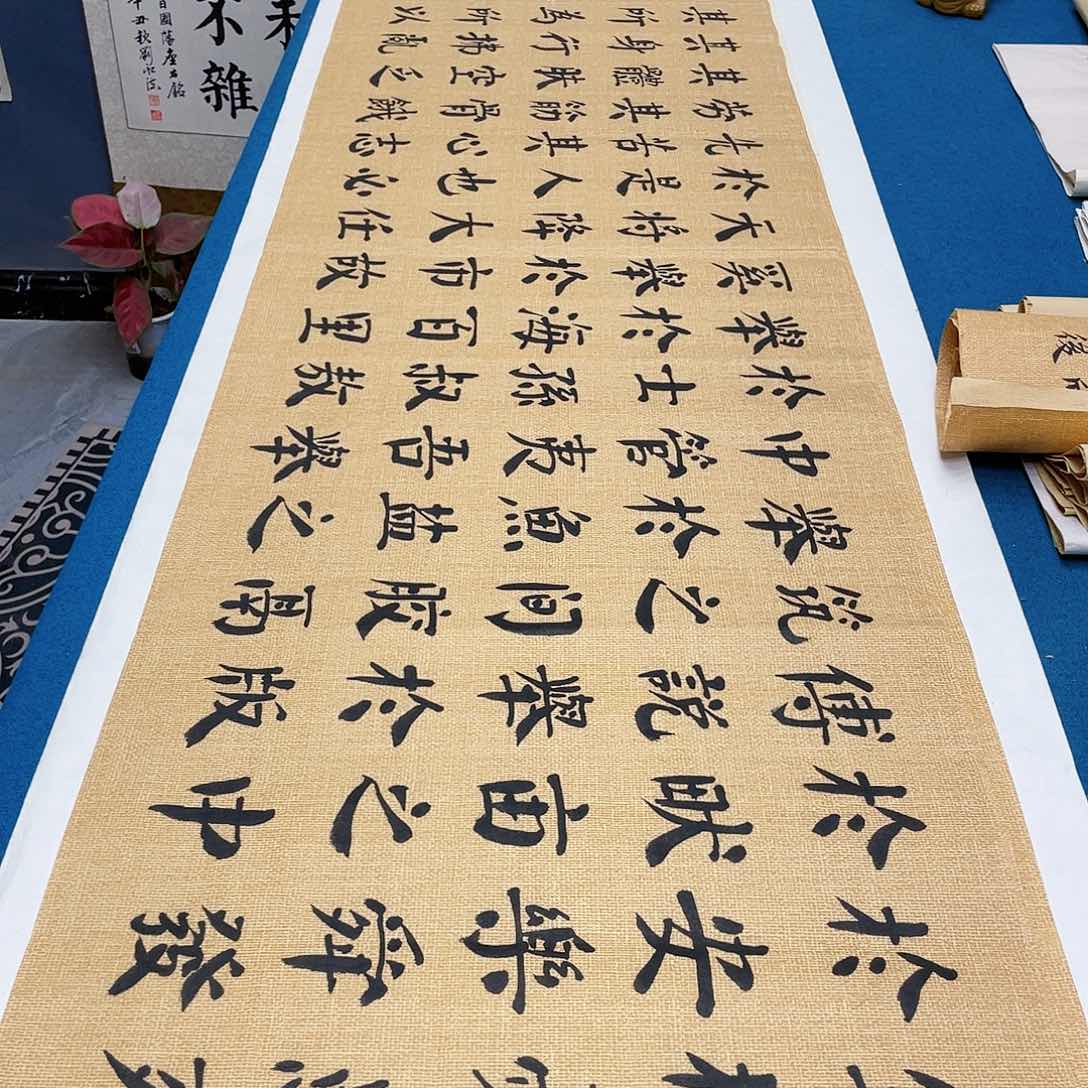 於安樂舜發
於畎畝之中
傅說舉於版
築之間膠鬲
舉於魚鹽之
中管夷吾舉
於士孫叔敖
舉於海百里
奚舉於市故
天將降大任
於是人也必
先苦其心志
勞其筋骨餓
其體膚空乏
其身行拂亂
其所為所以
不雜
國藩座右銘
丑秋劉
後